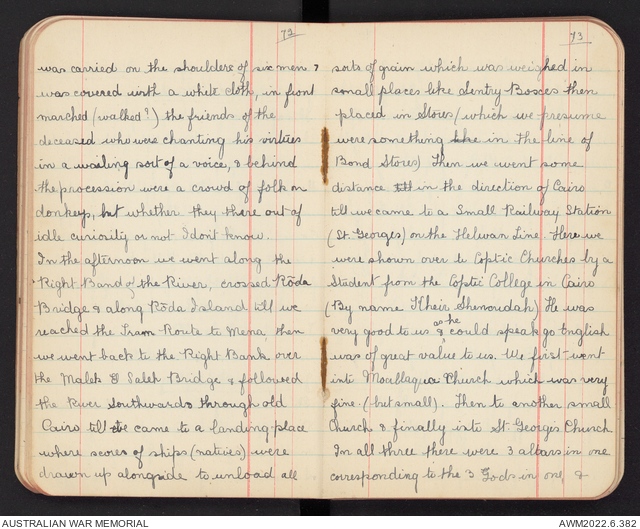 72
was carried on the shoulders of six men &
was covered with a white cloth, in front
marched (walked?) the friends of the
deceased who were chanting his virtues
in a wailing sort of a voice, & behind
the procession were a crowd of folk on
donkeys, but whether they there out of
idle curiosity or not I dont know.
In the afternoon we went along the
Right Band of the River, crossed Rōda
Bridge & along Rōda Island till we
reached the Tram Route to Mena, then
we went back to the Right Bank over
the Malek & Saleh Bridge & followed
the River southwards through old
Cairo till we came to a landing-place
where scores of ships (natives) were
drawn up alongside to unload all
73
sorts of grain which was weighed in
small places like Sentry Boxes then
placed in Stores (which we presume
were something like in the line of
Bond Stores) Then we went some
distance till in the direction of Cairo
till we came to a Small Railway Station
(St. Georges) on the Helwan Line. Here we
were shown over to Coptic Churches by a
Student from the Coptic College in Cairo
(By name Kheir Shenoudah) He was
very good to us & as he could speak go English
was of great value to us. We first went
into Moallaqua Church which was very
fine. (but small). Then to another small
Church & finally into St. Georges Church
In all three there were 3 altars in one
corresponding to the 3 Gods in one, &
AUSTRALIAN WAR MEMORIAL
AWM2022.6.382